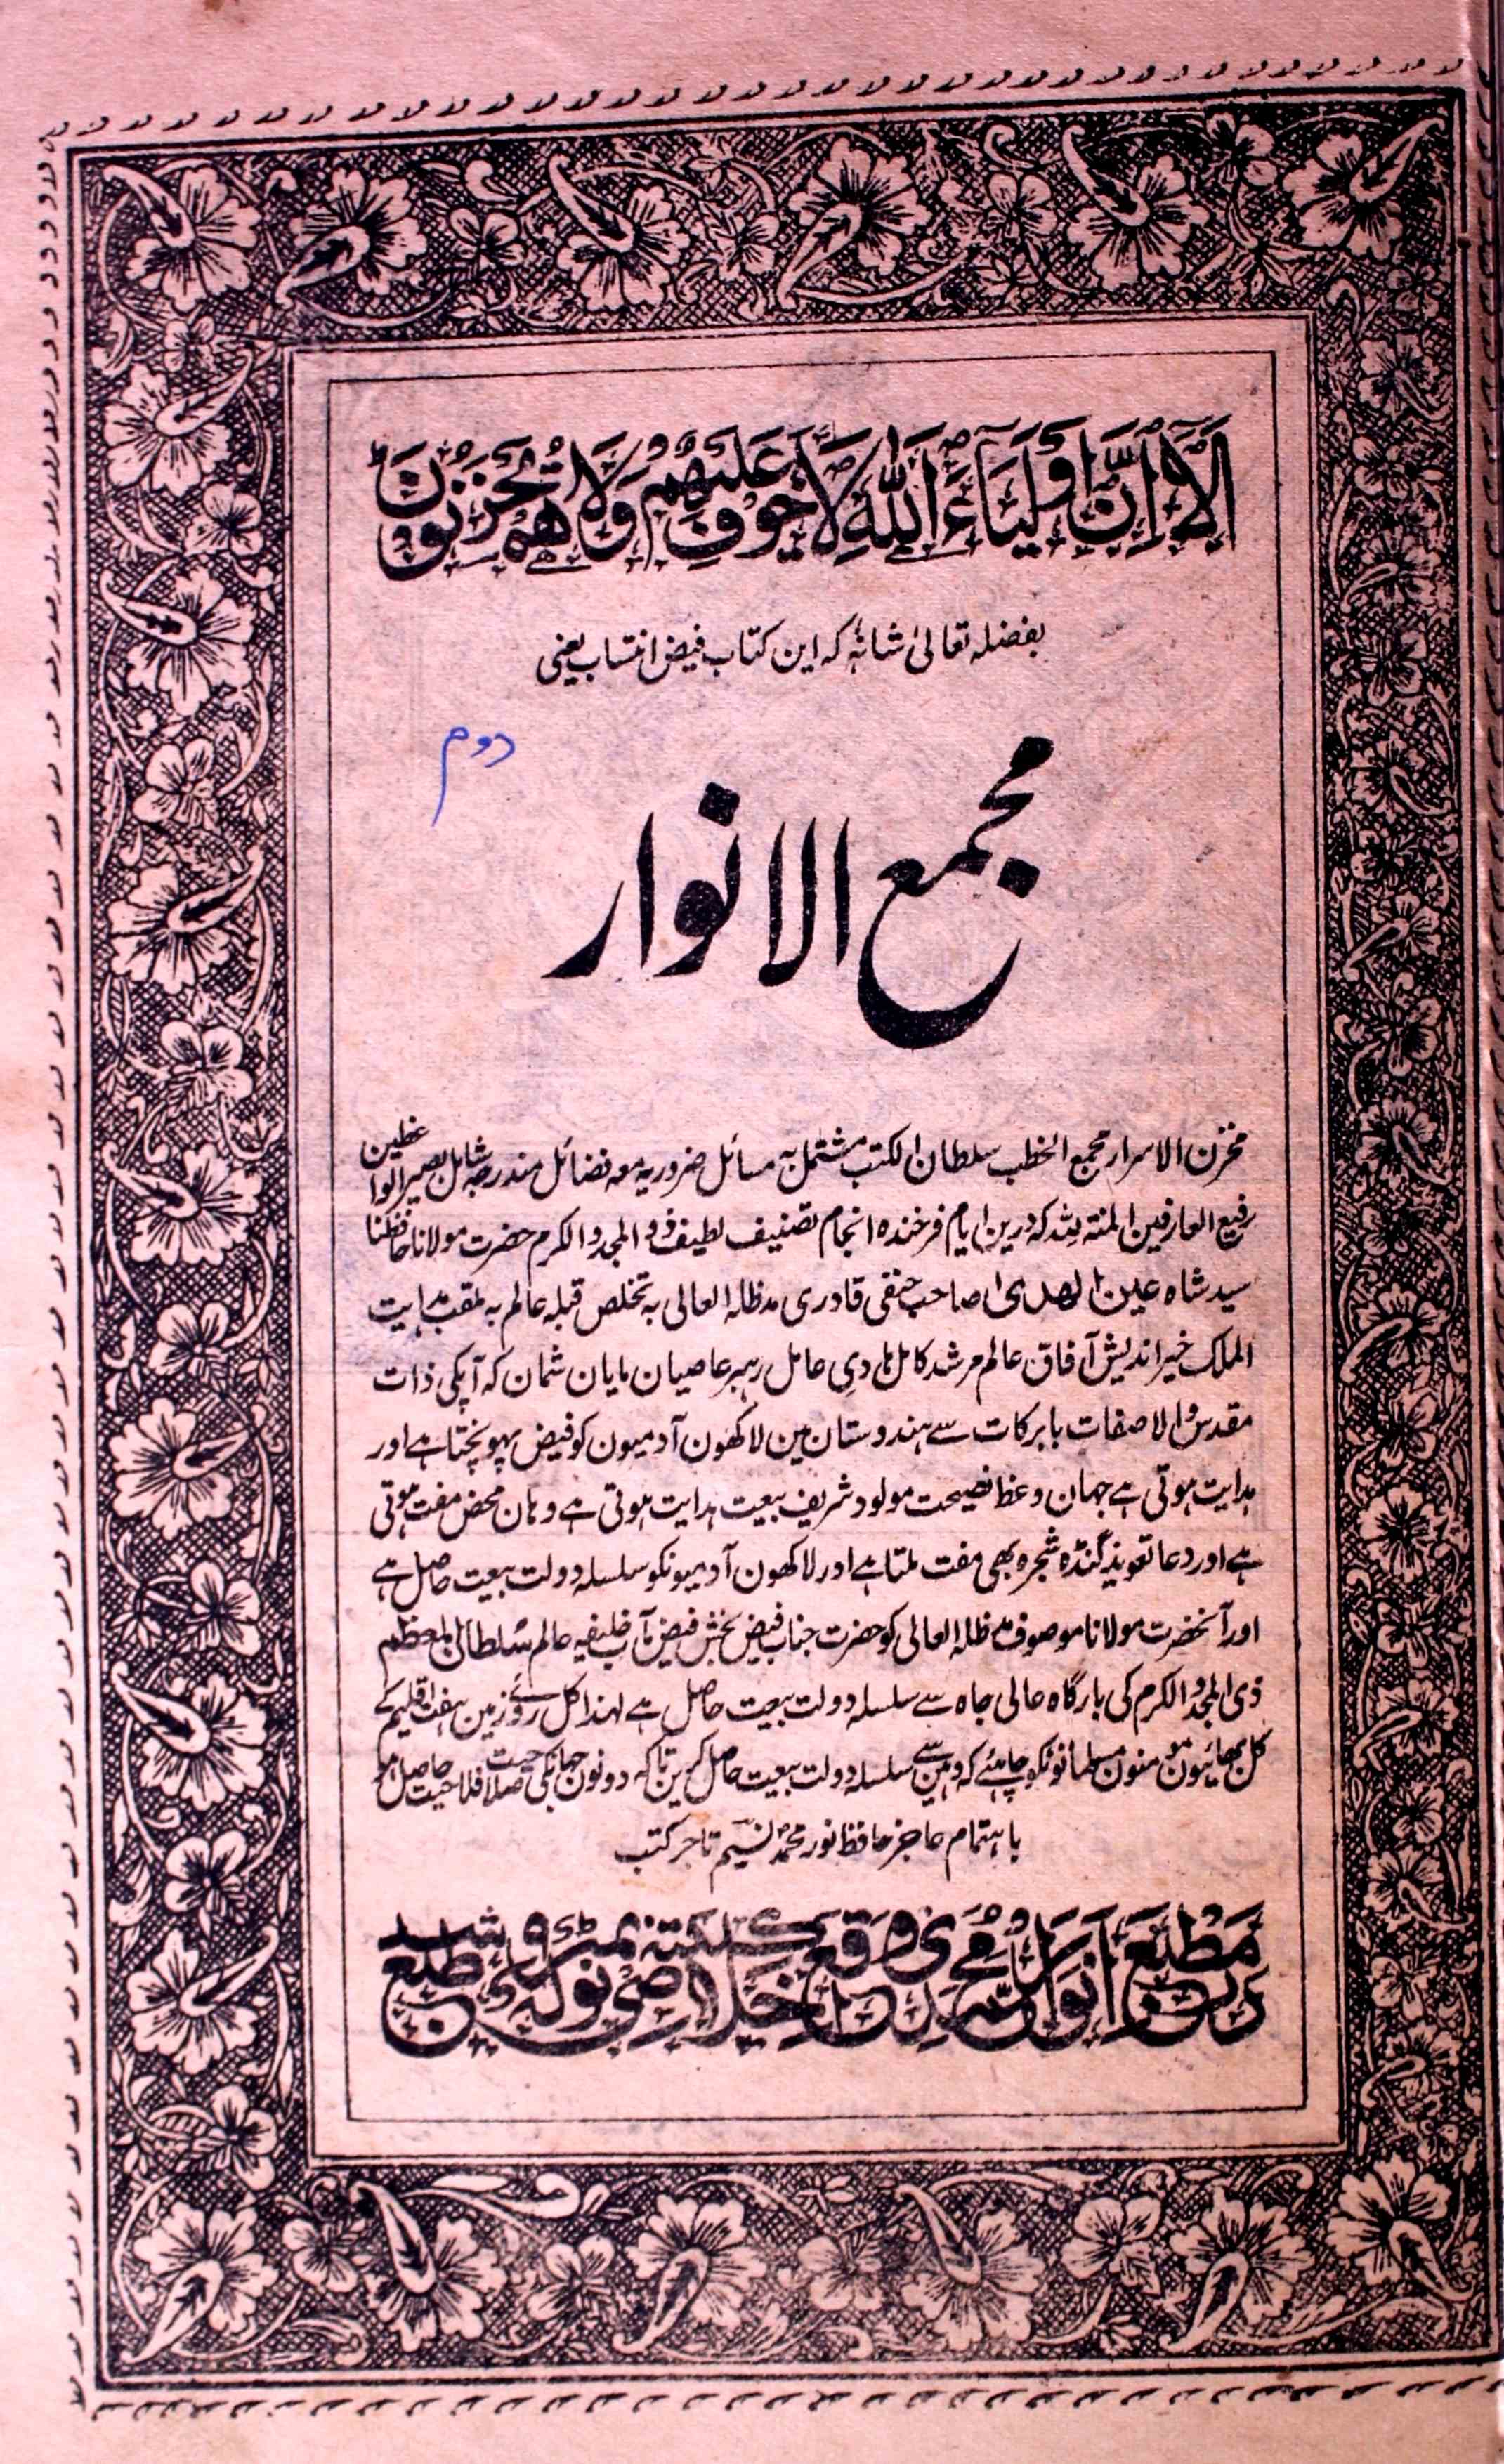 اَلَآ اِنَّ اَوْلِیَآءَ اللّٰهِ لَا خَوْفٌ عَلَیْهِمْ وَلَا هُمْ یَحْزَنُوْنَ ط
بفضلہ تعالیٰ شانہٗ کہ این کتاب فیض انتساب یعنی
دوم
مجمع الانوار
مخزن الاسرار مجمع الخطب سلطان الکتب مشتمل بہ مسائل ضروریہ معہ فضائل مندرجہ شامل بصیر الواعظین
رفیع العارفین المنتہ للہ کہ درین ایام فرخندہ انجام تصنیف لطیف ذو المجد والکرم حضرت مولانا حافظنا
سید شاہ عین الھدیٰ صاحب حنفی قادری مدظلہ العالی بہ تخلص قبلہ عالم بہ ملقب ہدایت
الملک خیر اندیش آفاق عالم مرشد کامل ہادیِ عامل رہبر عاصیان مایان شمان کہ آپکی ذات
مقدس والا صفات بابرکات سے ہندوستان مین لاکھون آدمیون کو فیض پہونچتا ہے اور
ہدایت ہوتی ہے جہان وعظ نصیحت مولود شریف بیعت ہدایت ہوتی ہے وہان محض مفت ہوتی
ہے اور دعا تعویذ گنڈہ شجرہ بھی مفت ملتا ہے اور لاکھون آدمیونکو سلسلہ دولت بیعت حاصل ہے
اور آنحضرت مولانا موصوف مدظلہ العالی کو حضرت جناب فیض بخش فیض مآب خلیفہ عالم سلطان المعظم
ذی المجد والکرم کی بارگاہ عالی جاہ سے سلسلہ دولت بیعت حاصل ہے لہذا کل روئے زمین ہفت اقلیم کے
کل بھائیون مومنون مسلمانونکو چاہئے کہ وہین سے سلسلہ دولت بیعت حاصل کرین تاکہ دونون جہانکی صلاحیت فلاحیت حاصل ہو
باہتمام عاجز حافظ نور محمد نسیم تاجر کتب
در مطبع انوار محمدی واقع کلکتہ نمبر طبع شد